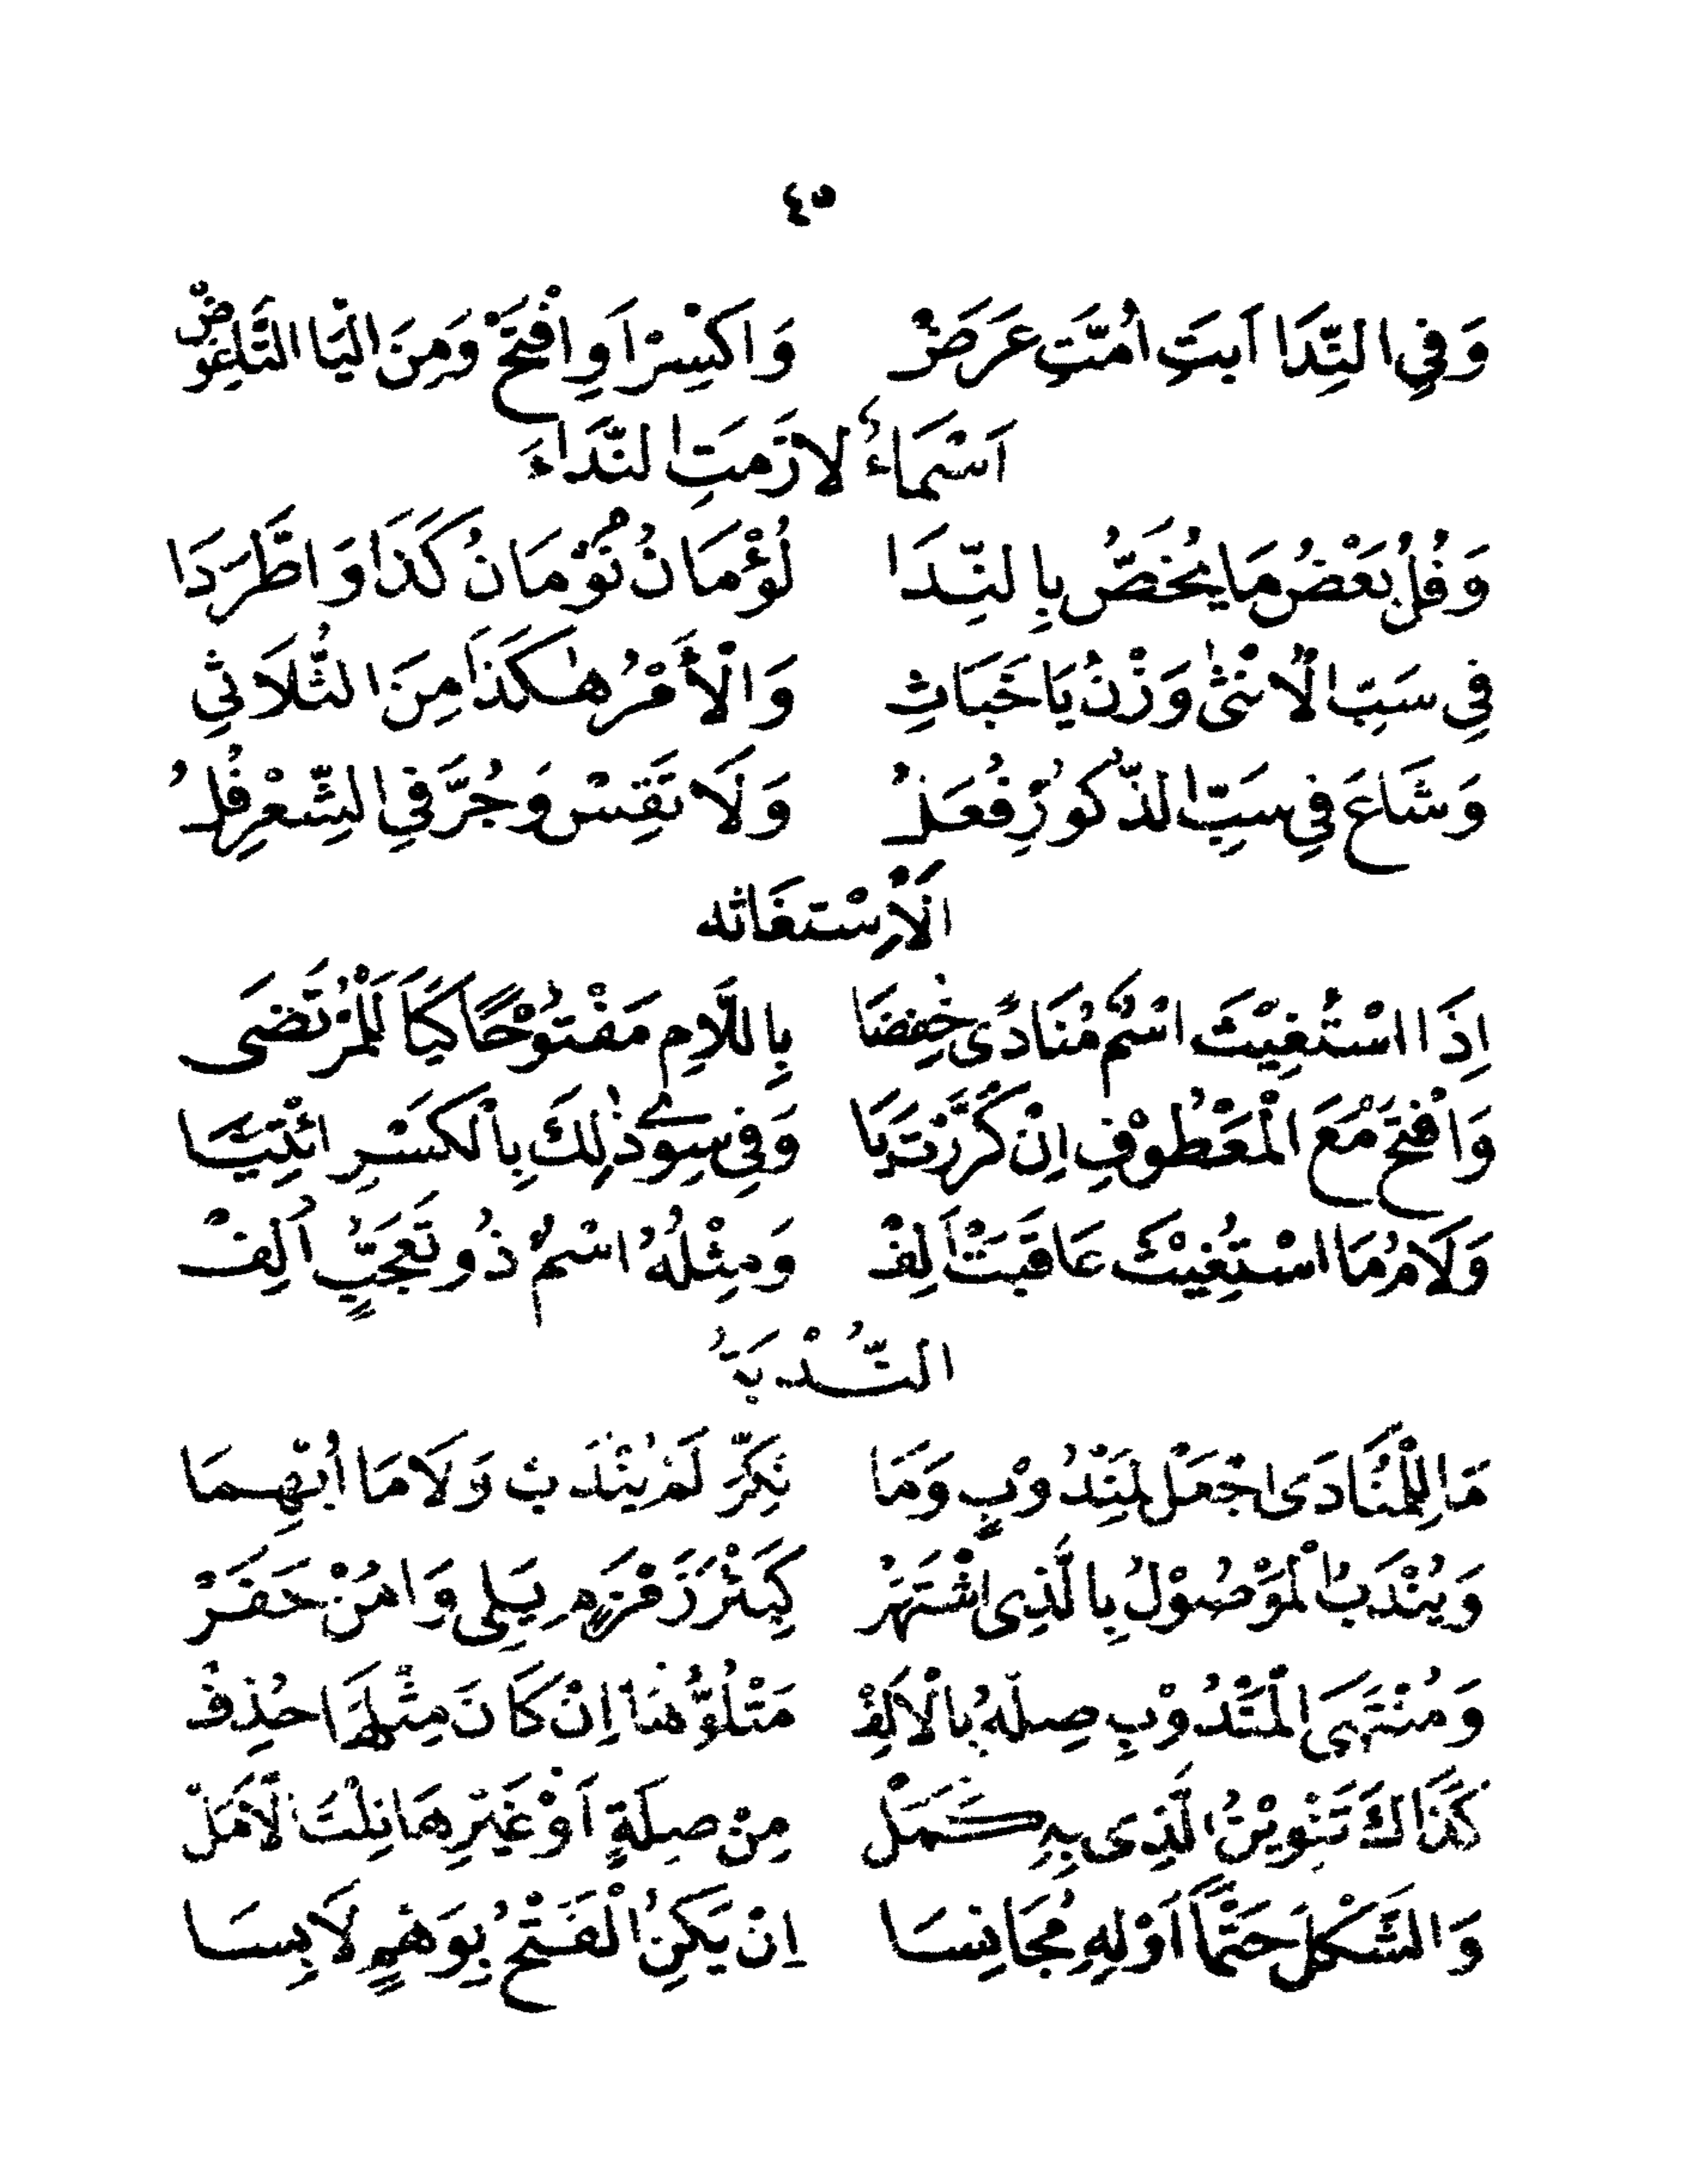 ٤٥
وَفِي النِّدَا اَبَتِ اُمَّتِ عَرَضْ وَاكْسِرْ اَوِ افْتَحْ وَمِنَ الْيَا التَّاعِوَضْ
اَسْمَاءُ لَازَمَتِ النِّدَاءَ
وَفُلُ بَعْضُ مَا يُخَصُّ بِالنِّدَا لُؤْمَانُ نَوْمَانُ كَذَا وَاطَّرَدَا
فِي سَبِّ الْاُنْثٰى وَزْنُ يَاخَبَاثِ وَالْأَمْرُ هٰكَذَا مِنَ الثُّلَاثِي
وَشَاعَ فِي سَبِّ الذُّكُوْرِ فُعَلُ وَلَا تَقِسْ وَجُرَّ فِي الشِّعْرِ فُلُ
اَلْاِسْتغَاثه
اِذَا اسْتُغِيْثَ اسْمٌ مُنَادًى خُفِضَا بِاللَّامِ مَفْتُوْحًا كَيَا لَلْمُرْتَضَى
وَافْتَحْ مَعَ الْمَعْطُوْفِ اِنْ كَرَّرْتَ يَا وَفِي سِوٰى ذٰلِكَ بِالْكَسْرِ ائْتِيَا
وَلَامُ مَا اسْتُغِيْثَ عَاقَبَتْ اَلِفْ وَمِثْلُهُ اسْمٌ ذُو تَعَجُّبٍ اُلِفْ
النُّدْبَةُ
مَا لِلْمُنَادَى اجْعَلْ لِمَنْدُوْبٍ وَمَا نُكِّرَ لَمْ يُنْدَبْ وَلَا مَا اُبْهِمَا
وَيُنْدَبُ الْمَوْصُوْلُ بِالَّذِى اشْتَهَرْ كَبِئْرَ زَمْزَمٍ يَلِى وَامَنْ حَفَرْ
وَمُنْتَهَى الْمَنْدُوْبِ صِلْهُ بِالْاَلِفْ مَتْلُوُّهَا اِنْ كَانَ مِثْلَهَا حُذِفْ
كَذَاكَ تَنْوِيْنُ الَّذِى بِهِ كَمَلْ مِنْ صِلَةٍ اَوْ غَيْرِهَا نِلْتَ الْاَمَلْ
وَالشَّكْلَ حَتْمًا اَوْلِهِ مُجَانِسَا اِنْ يَكُنِ الْفَتْحُ بِوَهْمٍ لَابِسَا